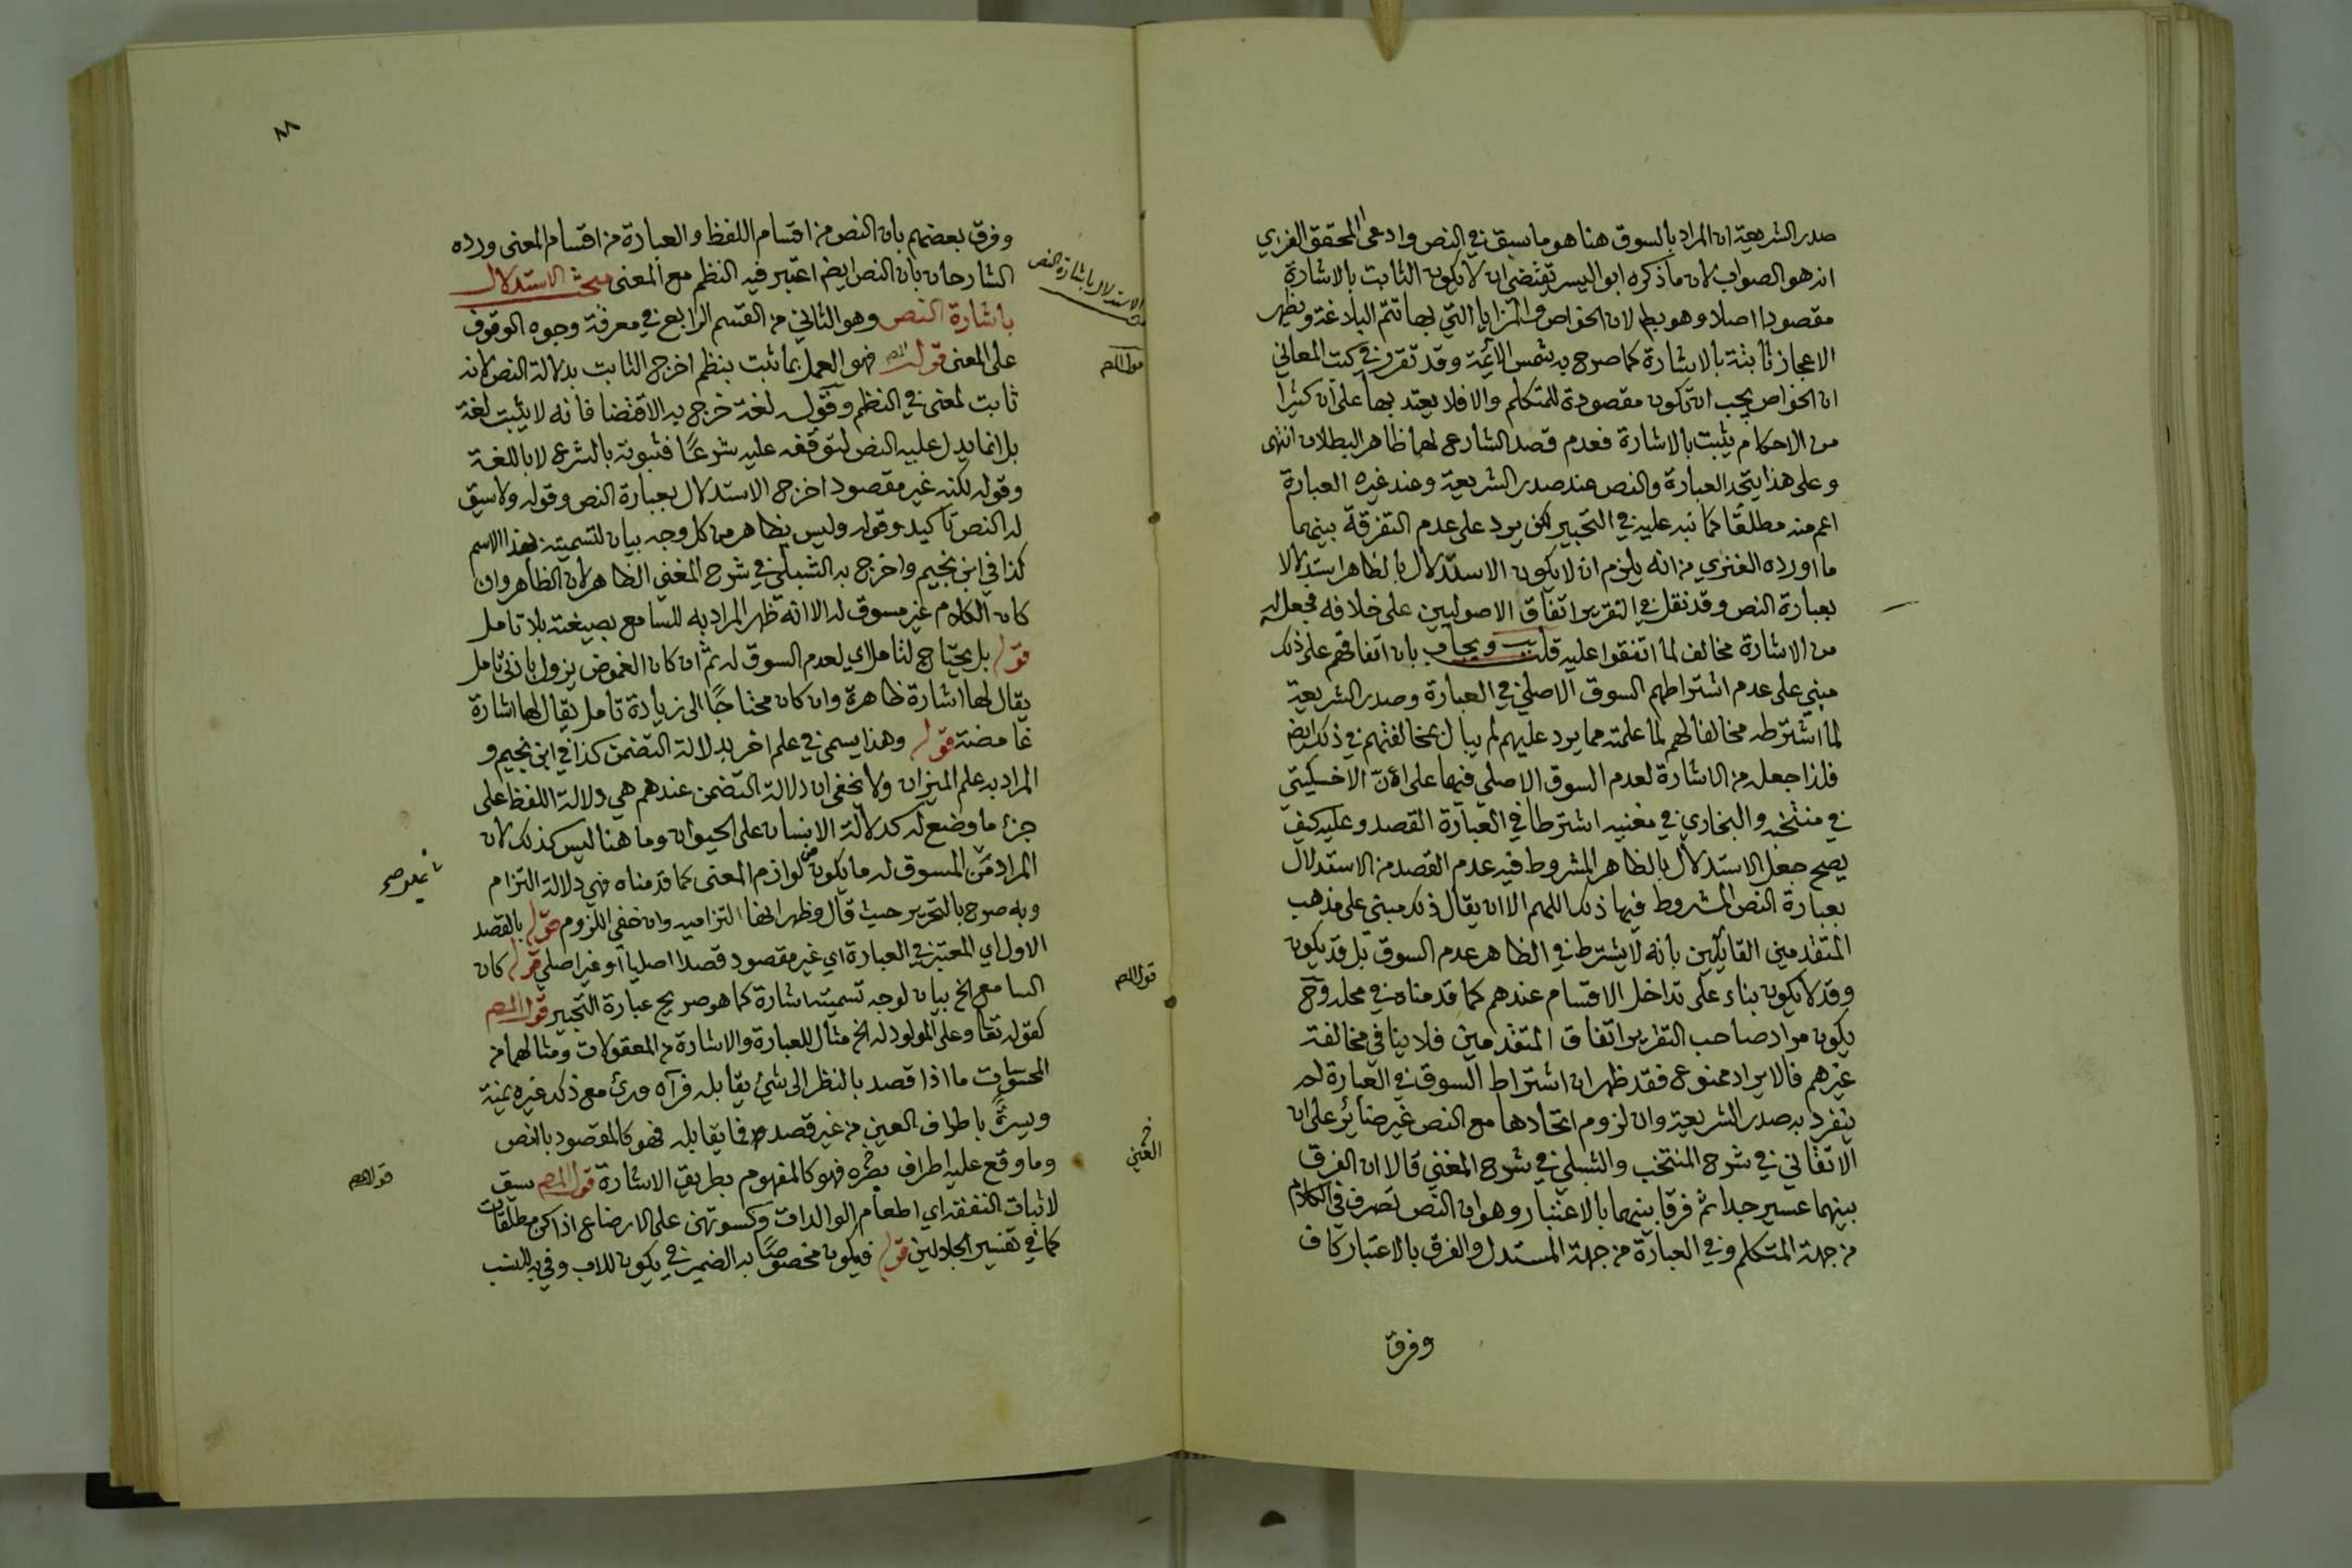 صدر الشريعة ان المراد بالسوق هنا هو ما سبق في النص وادعى المحقق الفنري
انه هو الصواب لان ما ذكره ابو اليسر يقتضي ان لا يكون الثابت بالاشارة
مقصودا اصلا وهو بط لان الخواص والمزايا التي بها تتم البلاغة ويظهر
الاعجاز ثابتة بالاشارة كما صرح به شمس الائمة وقد تقرر في كتب المعاني
ان الخواص يجب ان تكون مقصودة للمتكلم والا فلا يعتد بها على ان كثيرا
من الاحكام يثبت بالاشارة فعدم قصد الشارع لها ظاهر البطلان انتهى
وعلى هذا يتحد العبارة والنص عند صدر الشريعة وعند غيره العبارة
اعم منه مطلقا كما نبه عليه في التحبير لكن يرد على عدم التفرقة بينهما
ما اورده الفنري من انه يلزم ان لا يكون الاستدلال بالظاهر استدلالا
بعبارة النص وقد نقل في التقرير اتفاق الاصوليين على خلافه فجعله
من الاشارة مخالف لما اتفقوا عليه قلت ويجاب بان اتفاقهم على ذلك
مبني على عدم اشتراطهم السوق الاصلي في العبارة وصدر الشريعة
لما اشترطه مخالفا لهم لما علمته مما يرد عليهم لم يبال بمخالفتهم في ذلك ايضا
فلذا جعله من الاشارة لعدم السوق الاصلي فيها على ان الاخسيكتي
في منتخبه والبخاري في مغنيه اشترطا في العبارة القصد وعليه كيف
يصح جعل الاستدلال بالظاهر المشروط فيه عدم القصد من الاستدلال
بعبارة النص المشروط فيها ذلك اللهم الا ان يقال ذلك مبني على مذهب
المتقدمين القائلين بانه لا يشترط في الظاهر عدم السوق بل قد يكون
وقد لا يكون بناء على تداخل الاقسام عندهم كما قدمناه في محله وح
يكون مراد صاحب التقرير اتفاق المتقدمين فلا ينافي مخالفة
غيرهم فالايراد ممنوع فقد ظهر ان اشتراط السوق في العبارة لم
ينفرد به صدر الشريعة وان لزوم اتحادها مع النص غير ضائر على ان
الاتقاني في شرح المنتخب والشبلي في شرح المغني قالا ان الفرق
بينهما عسير جدا ثم فرقا بينهما بالاعتبار وهو ان النص تصرف في الكلام
من جهة المتكلم وفي العبارة من جهة المستدل والفرق بالاعتبار كاف
وفرق
٨٨
وفرق بعضهم بان النص من اقسام اللفظ والعبارة من اقسام المعنى ورده
الشارحان بان النص ايضا اعتبر فيه النظم مع المعنى مبحث الاستدلال
باشارة النص وهو الثاني من القسم الرابع في معرفة وجوه الوقوف
على المعنى قوله المص فهو العمل بما ثبت بنظمه اخرج الثابت بدلالة النص لانه
ثابت لمعنى في النظم وقوله لغة خرج به الاقتضا فانه لا يثبت لغة
بل انما يدل عليه النص لتوقفه عليه شرعًا فثبوته بالشرع لا باللغة
وقوله لكنه غير مقصود اخرج الاستدلال بعبارة النص وقوله ولا سيق
له النص تاكيد وقوله وليس بظاهر من كل وجه بيان لتسميته بهذا الاسم
كذا في ابن نجيم واخرج به الشبلي في شرح المغني الظاهر لان الظاهر وان
كان الكلام غير مسوق له الا انه ظهر المراد به للسامع بصيغته بلا تامل
قوله بل يحتاج لتامل اي لعدم السوق له ثم ان كان الغموض يزول بادنى تامل
يقال لها اشارة ظاهرة وان كان محتاجًا الى زيادة تامل يقال لها اشارة
غامضة قوله وهذا يسمى في علم اخر بدلالة التضمن كذا في ابن نجيم و
المراد به علم الميزان ولا يخفى ان دلالة التضمن عندهم هي دلالة اللفظ على
جزء ما وضع له كدلالة الانسان على الحيوان وما هنا ليس كذلك لان
المراد من المسوق له ما يكون من لوازم المعنى كما قدمناه فهي دلالة التزام
وبه صرح بالتحرير حيث قال وظهر انها التزامية وان خفي اللزوم قوله بالقصد
الاول اي المعتبر في العبارة اي غير مقصود قصدا اصليا او غير اصلي قوله كان
السامع الخ بيان لوجه تسميته اشارة كما هو صريح عبارة التحبير قول المص
كقوله تعا وعلى المولود له الخ مثال للعبارة والاشارة من المعقولات ومثالهما من
المحسوسات ما اذا قصد بالنظر الى شيئ يقابله فرآه ورئ مع ذلك غيره يمنة
ويسرةً باطراف العين من غير قصد فما يقابله فهو كالمقصود بالنص
وما وقع عليه اطراف بصره فهو كالمفهوم بطريق الاشارة قول المص سيق
لاثبات النفقة اي اطعام الوالدات وكسوتهن على الارضاع اذا كن مطلقات
كما في تفسير الجلالين قوله فيكون مخصوصًا به الضمير في يكون للاب وفي به للنسب
الاستدلال باشارة النص
قول المص
قول المص
قول المص
العين